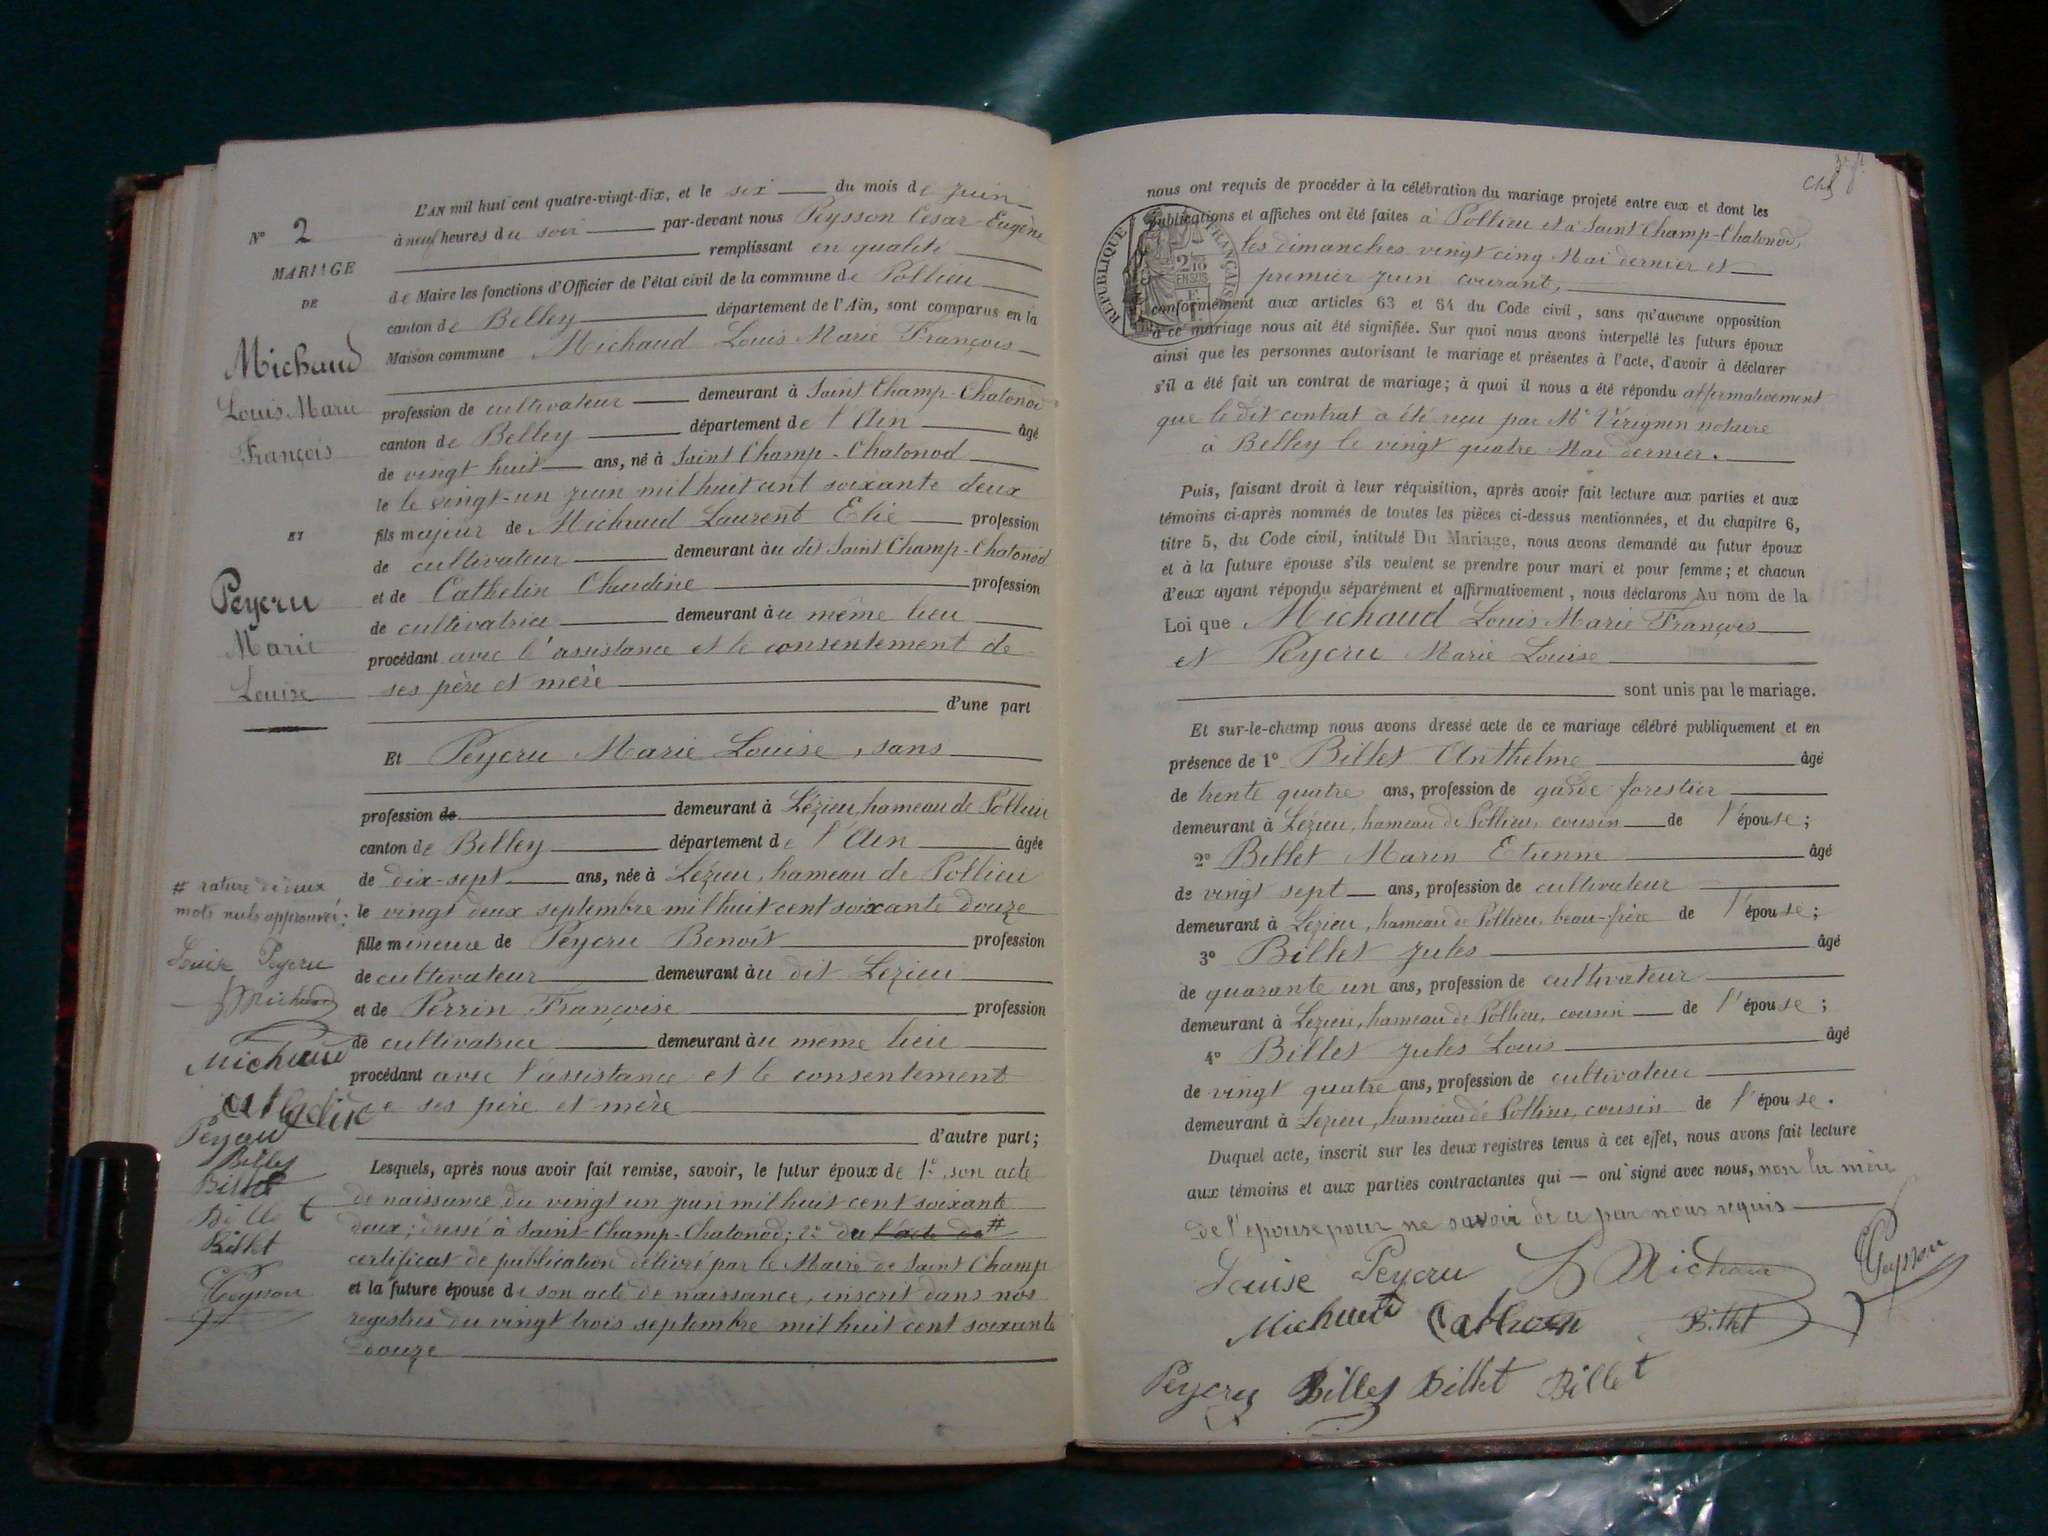 N° 2
MARIAGE
DE
Michaud
Louis Marie
François
ET
Peycru
Marie
Louise
# rature de deux
mots nuls approuvée:
Louise Peycru
Michaud
Michaud
Peycru
Billet
Billet
Billet
Billet
Peysson
L'AN mil huit cent quatre-vingt-dix, et le six du mois de juin
à neuf heures du soir par-devant nous Peysson César-Eugène
remplissant en qualité
de Maire les fonctions d'Officier de l'état civil de la commune de Pollieu
canton de Belley département de l'Ain, sont comparus en la
Maison commune Michaud Louis Marie François
profession de cultivateur demeurant à Saint Champ-Chatonod
canton de Belley département de l'Ain âgé
de vingt huit ans, né à Saint Champ-Chatonod
le le vingt-un juin mil huit cent soixante deux
fils majeur de Michaud Laurent Elie profession
de cultivateur demeurant au dit Saint Champ-Chatonod
et de Cathelin Claudine profession
de cultivatrice demeurant au même lieu
procédant avec l'assistance et le consentement de
ses père et mère
d'une part
Et Peycru Marie Louise, sans
profession de demeurant à Lézieu, hameau de Pollieu
canton de Belley département de l'Ain âgée
de dix-sept ans, née à Lézieu, hameau de Pollieu
le vingt deux septembre mil huit cent soixante douze
fille mineure de Peycru Benoît profession
de cultivateur demeurant au dit Lézieu
et de Perrin Françoise profession
de cultivatrice demeurant au même lieu
procédant avec l'assistance et le consentement
de ses père et mère
d'autre part;
Lesquels, après nous avoir fait remise, savoir, le futur époux de 1° son acte
de naissance du vingt un juin mil huit cent soixante
deux; dressé à Saint-Champ-Chatonod; 2° du l'acte de #
certificat de publication délivré par le Maire de Saint Champ
et la future épouse de son acte de naissance, inscrit dans nos
registres du vingt trois septembre mil huit cent soixante
douze
nous ont requis de procéder à la célébration du mariage projeté entre eux et dont les
publications et affiches ont été faites à Pollieu et à Saint Champ-Chatonod,
les dimanches vingt cinq Mai dernier et
premier juin courant,
RÉPUBLIQUE FRANÇAISE
2/10 EN SUS
conformément aux articles 63 et 64 du Code civil, sans qu'aucune opposition
à ce mariage nous ait été signifiée. Sur quoi nous avons interpellé les futurs époux
ainsi que les personnes autorisant le mariage et présentes à l'acte, d'avoir à déclarer
s'il a été fait un contrat de mariage; à quoi il nous a été répondu affirmativement
que le dit contrat a été reçu par Me Vérignon notaire
à Belley le vingt quatre Mai dernier.
Puis, faisant droit à leur réquisition, après avoir fait lecture aux parties et aux
témoins ci-après nommés de toutes les pièces ci-dessus mentionnées, et du chapitre 6,
titre 5, du Code civil, intitulé Du Mariage, nous avons demandé au futur époux
et à la future épouse s'ils veulent se prendre pour mari et pour femme; et chacun
d'eux ayant répondu séparément et affirmativement, nous déclarons Au nom de la
Loi que Michaud Louis Marie François
et Peycru Marie Louise
sont unis par le mariage.
Et sur-le-champ nous avons dressé acte de ce mariage célébré publiquement et en
présence de 1° Billet Anthelme âgé
de trente quatre ans, profession de garde forestier
demeurant à Lézieu, hameau de Pollieu, cousin de l'épouse;
2° Billet Marin Etienne âgé
de vingt sept ans, profession de cultivateur
demeurant à Lézieu, hameau de Pollieu, beau-frère de l'épouse;
3° Billet Jules âgé
de quarante un ans, profession de cultivateur
demeurant à Lézieu, hameau de Pollieu, cousin de l'épouse;
4° Billet Jules Louis âgé
de vingt quatre ans, profession de cultivateur
demeurant à Lézieu, hameau de Pollieu, cousin de l'épouse.
Duquel acte, inscrit sur les deux registres tenus à cet effet, nous avons fait lecture
aux témoins et aux parties contractantes qui — ont signé avec nous, non la mère
de l'épouse pour ne savoir de ce par nous requis
Louise Peycru Michaud Peysson
Michaud Cathelin Billet
Peycru Billet Billet Billet